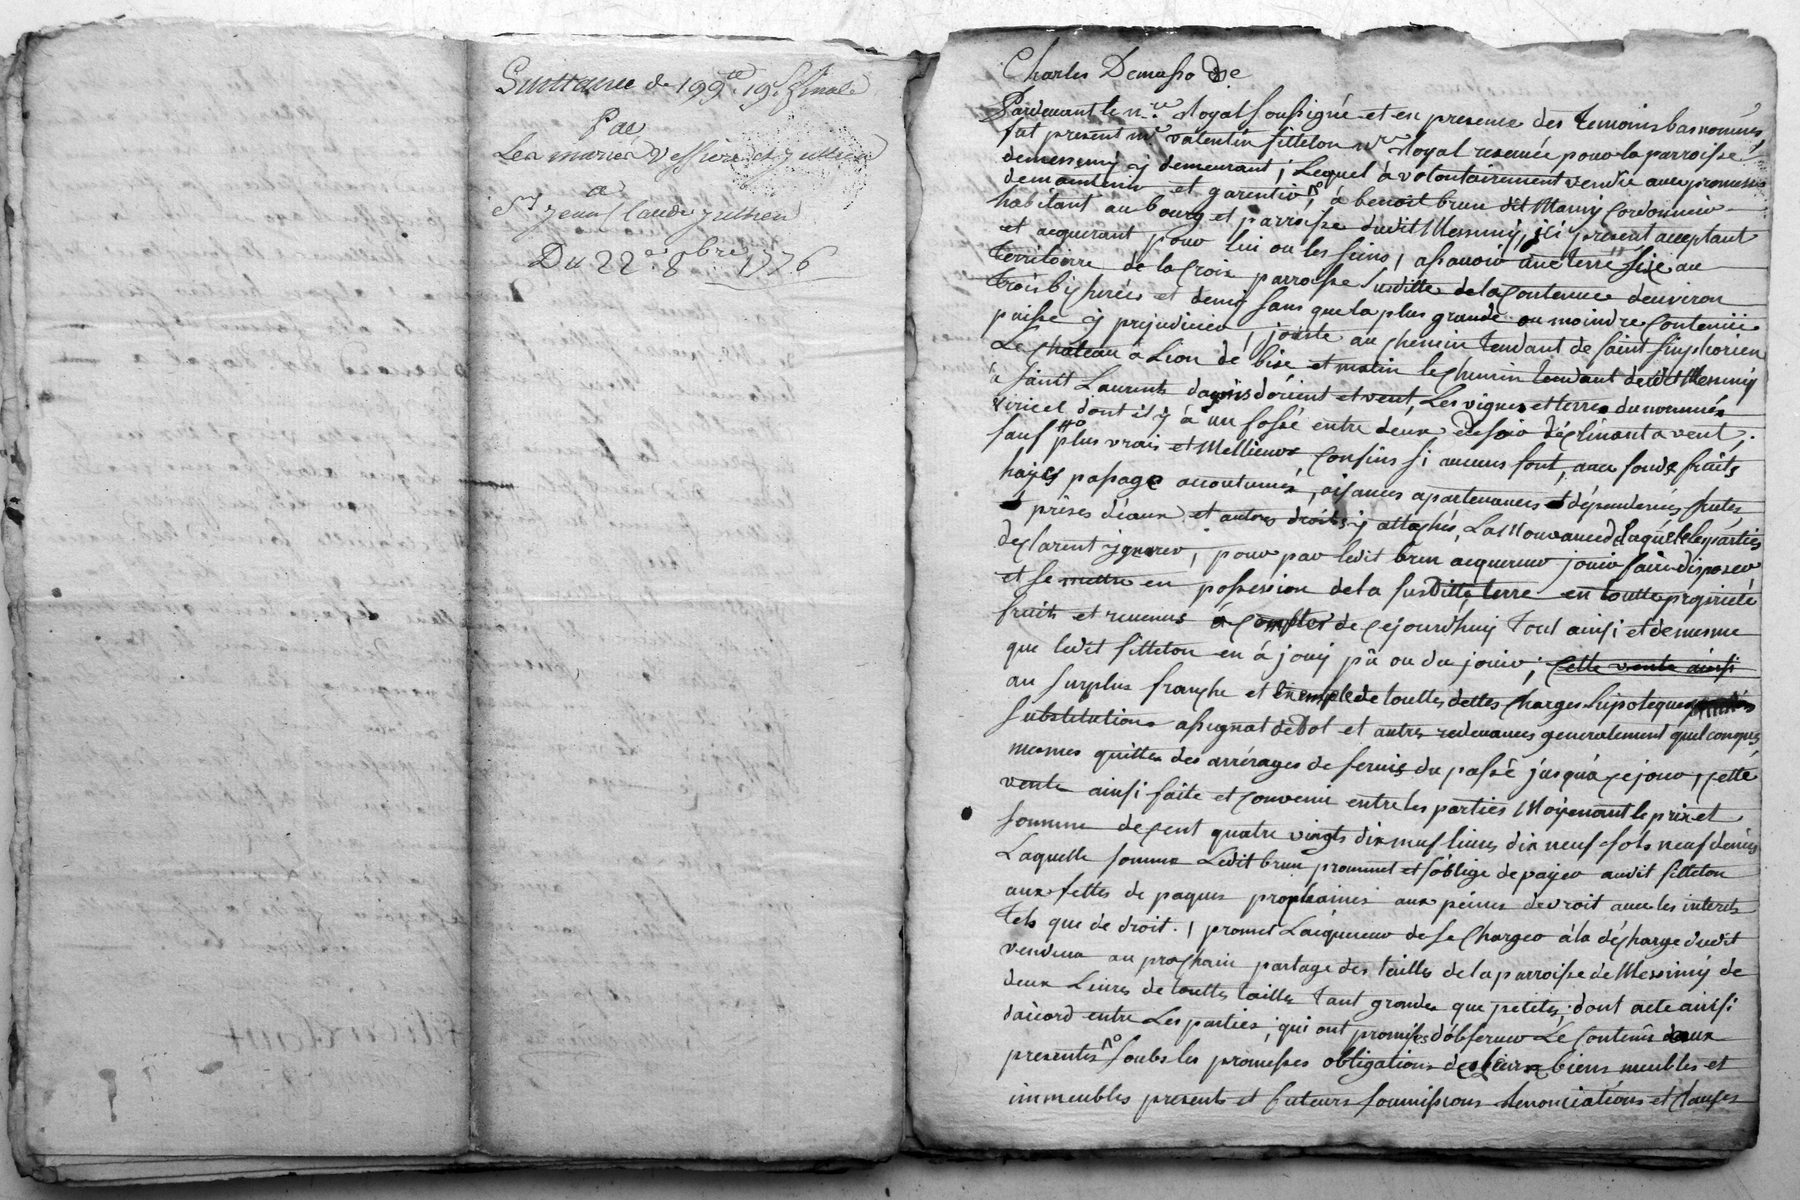 Quittance de 199 ᵗᵗ 19ˢ finale
Par
Les mariés Vessiere et Jullien
a
Sʳ Jean Claude Jullien
Du 22ᵉ 8bre 1776
Charles
Pardevant le nʳᵉ Royal soussigné et en presence des temoins bas nommés
fut present mᵉ valentin filleton nʳᵉ Royal reservée pour la parroisse
de messimy y demeurant ; Lequel à volontairement vendu avec promesse
de maintenir et garentir, à benoit brun dit Mamy Cordonnier
habitant au bourg et parroisse dudit Messimy, ici present acceptant
et acquerant pour lui ou les siens, assavoir une terre size au
Territoire de la Croix parroisse susditte de la Contenue d'environ
trois bicherées et demy sans que la plus grande ou moindre Contenüe
puisse y prejudicier, jouste au chemin tendant de saint simphorien
Le Château à Lion de bise et matin le chemin tendant dudit Messimy
à saint Laurent d'orient et vent, Les vignes et terres du nommé
dont il y à un fossé entre deux de soir déclinant a vent ;
sauf plus vrais et Mellieurs Confins si aucuns sont, avec fonds fruits
hayes passage accoutumés, aisances apartenances et dépendences suites
et prises d'eaux et autres droits y attachés, La Mouvance de laquelle les parties
declarent ygnorer, pour par ledit brun acquereur jouir faire disposer
et se mettre en possession de la susditte terre en toutte propriété
fruits et revenus à Compter de cejourdhuy tout ainsi et de mesme
que ledit filleton en à jouy pû ou du jouir ; Cette vente ainsi
au surplus franche et exempte de touttes dettes charges hipoteques
substitutions assignat de Dot et autres redevances generalement quelconques
mesmes quitte des arrérages de servis du passé jusqu'à ce jour, cette
vente ainsi faite et convenu entre les parties Moyenant le prix et
somme de cent quatre vingts dix neuf livres dix neuf sols neuf deniers
Laquelle somme Ledit brun promet et s'oblige de payer audit filleton
aux fettes de paques prochaines aux peines de droit avec les interets
tels que de droit. promet L'aquereur de se Charger à la décharge dudit
vendeur au prochain partage des tailles de la parroisse de Messimy de
deux Livres de touttes tailles tant grandes que petites, dont acte ainsi
d'accord entre Les parties, qui ont promis d'observer Le Contenû aux
presentes soubs les promesses obligations de leurs biens meubles et
immeubles presents et futurs soumissions Renonciations et clauses